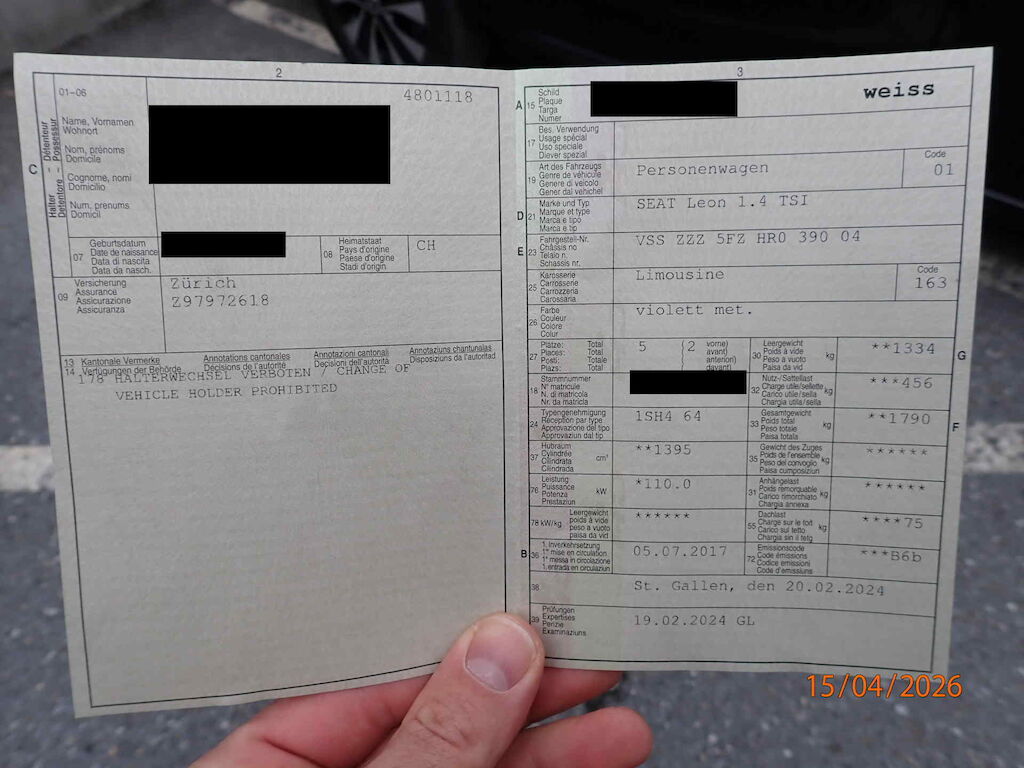 2
01-06
4801118
C
Halter – Détenteur
Detentore – Possessur
Name, Vornamen
Wohnort
Nom, prénoms
Domicile
Cognome, nomi
Domicilio
Num, prenums
Domicil
07
Geburtsdatum
Date de naissance
Data di nascita
Data da nasch.
08
Heimatstaat
Pays d'origine
Paese d'origine
Stadi d'origin
CH
09
Versicherung
Assurance
Assicurazione
Assicuranza
Zürich
Z97972618
13 Kantonale Vermerke Annotations cantonales Annotazioni cantonali Annotaziuns chantunalas
14 Verfügungen der Behörde Décisions de l'autorité Disposizioni dell'autorità Disposiziuns da l'autoritad
178 HALTERWECHSEL VERBOTEN / CHANGE OF
VEHICLE HOLDER PROHIBITED
3
A 15
Schild
Plaque
Targa
Numer
weiss
17
Bes. Verwendung
Usage spécial
Uso speciale
Diever spezial
19
Art des Fahrzeugs
Genre de véhicule
Genere di veicolo
Gener dal vehichel
Personenwagen
Code
01
D 21
Marke und Typ
Marque et type
Marca e tipo
Marca e tip
SEAT Leon 1.4 TSI
E 23
Fahrgestell-Nr.
Châssis no
Telaio n.
Schassis nr.
VSS ZZZ 5FZ HR0 390 04
25
Karosserie
Carrosserie
Carrozzeria
Carossaria
Limousine
Code
163
26
Farbe
Couleur
Colore
Colur
violett met.
27
Plätze: Total
Places: Total
Posti: Totale
Plazs: Total
5 (2
vorne)
avant)
anteriori)
davant)
30
Leergewicht
Poids à vide
Peso a vuoto
Paisa da vid
kg
**1334
G
18
Stammnummer
N° matricule
N. di matricola
Nr. da matricla
32
Nutz-/Sattellast
Charge utile/sellette
Carico utile/sella
Chargia utila/sella
kg
***456
24
Typengenehmigung
Réception par type
Approvazione del tipo
Approvaziun dal tip
1SH4 64
33
Gesamtgewicht
Poids total
Peso totale
Paisa totala
kg
**1790
F
37
Hubraum
Cylindrée
Cilindrata
Cilindrada
cm³
**1395
35
Gewicht des Zuges
Poids de l'ensemble
Peso del convoglio
Paisa cumposiziun
kg
******
76
Leistung
Puissance
Potenza
Prestaziun
kW
*110.0
31
Anhängelast
Poids remorquable
Carico rimorchiato
Chargia annexa
kg
******
78 kW/kg
Leergewicht
poids à vide
peso a vuoto
paisa da vid
******
55
Dachlast
Charge sur le toit
Carico sul tetto
Chargia sin il tetg
kg
****75
B 36
1. Inverkehrsetzung
1re mise en circulation
1a messa in circolazione
1. entrada en circulaziun
05.07.2017
72
Emissionscode
Code émissions
Codice emissioni
Code d'emissiuns
***B6b
38.
St. Gallen, den 20.02.2024
39
Prüfungen
Expertises
Perizie
Examinaziuns
19.02.2024 GL
15/04/2026